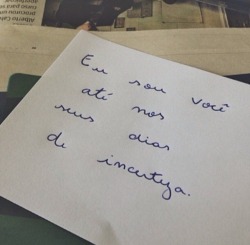 Eu sou você
até nos
seus dias
di incuteza.